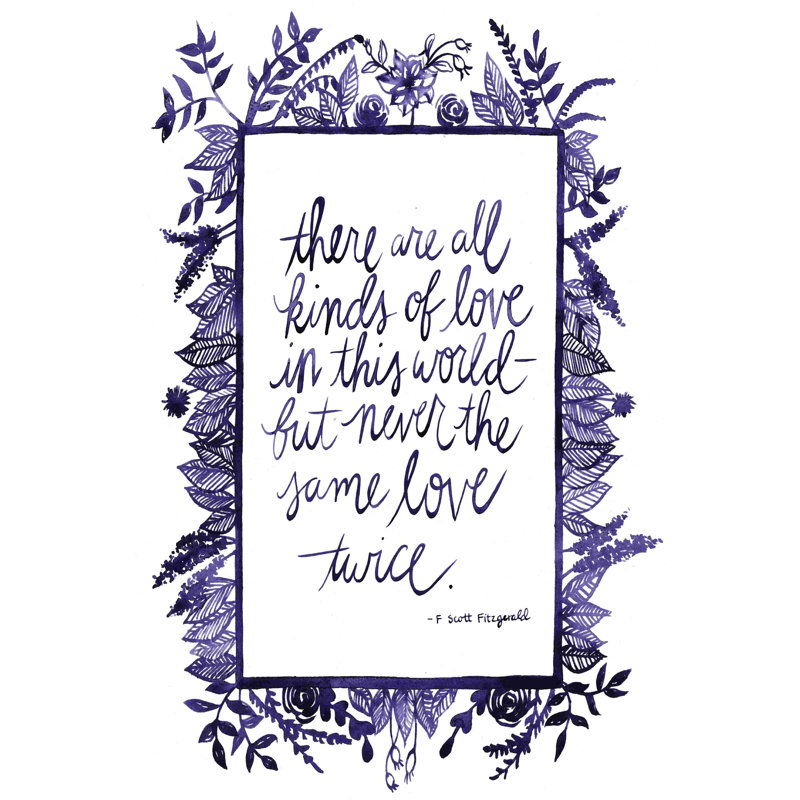 there are all
kinds of love
in this world-
but never the
same love
twice.
- F Scott Fitzgerald